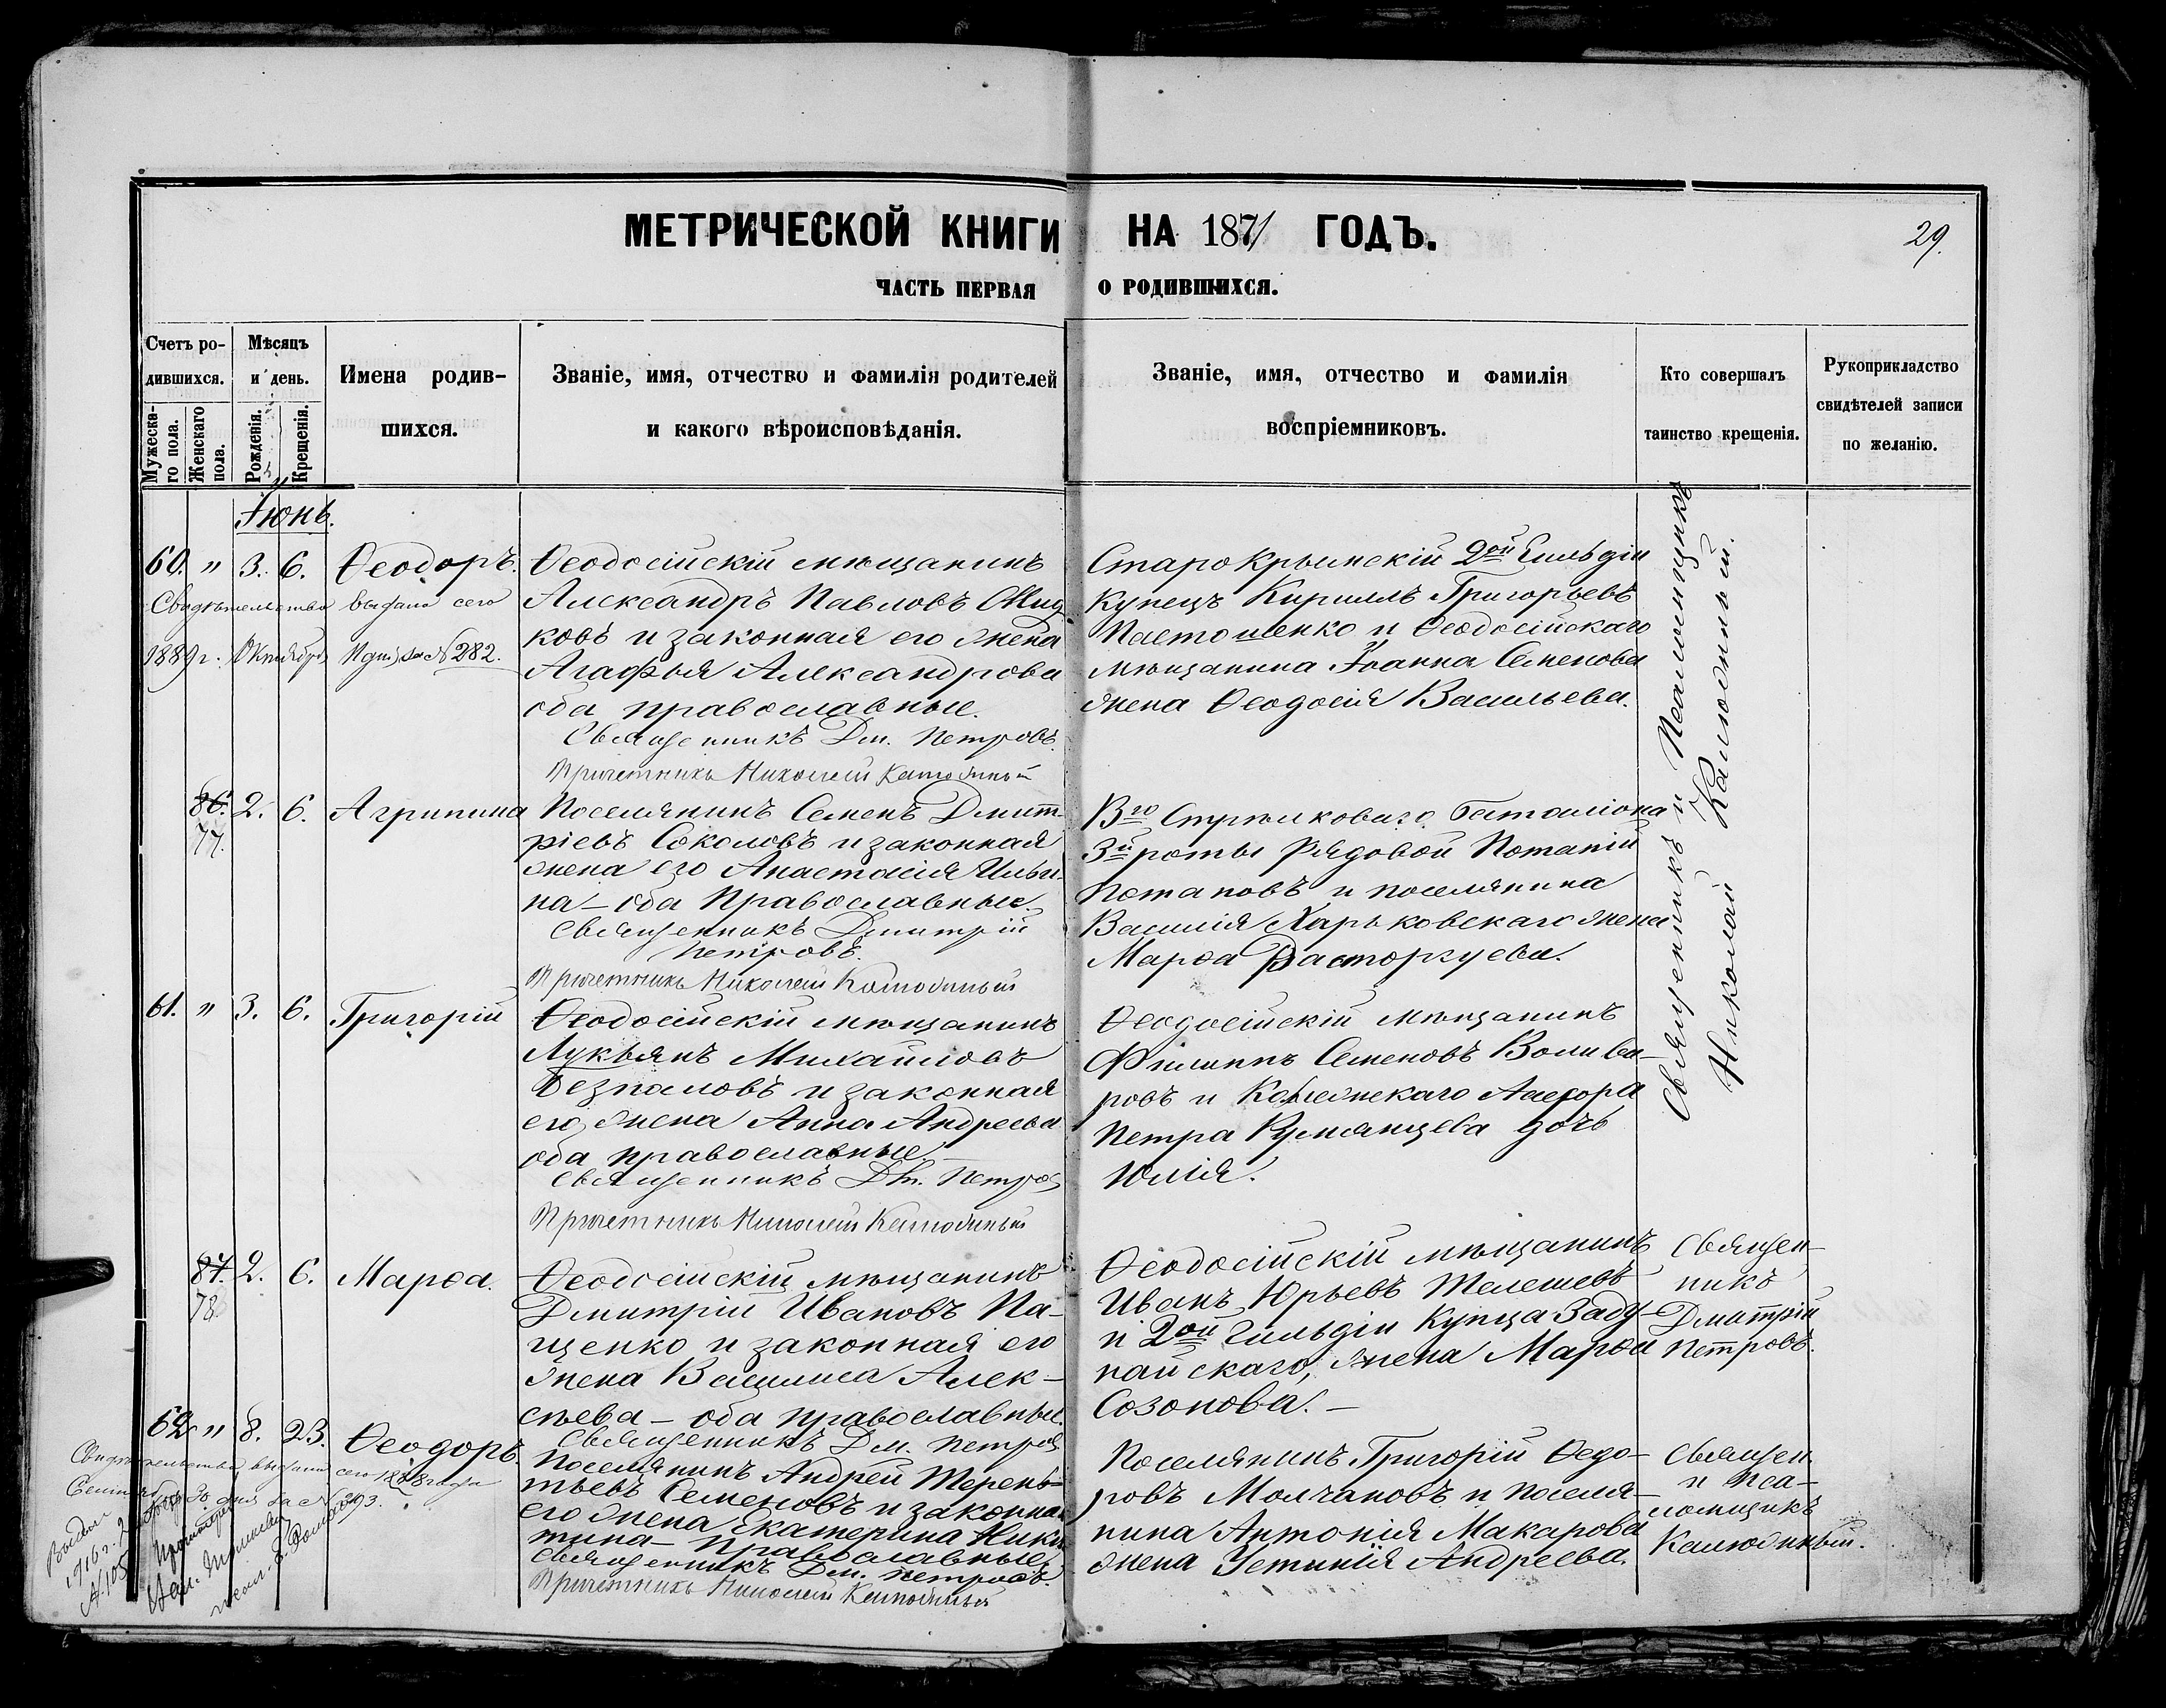 МЕТРИЧЕСКОЙ КНИГИ НА 1871 ГОДЪ.
29.
ЧАСТЬ ПЕРВАЯ О РОДИВШИХСЯ.
Счетъ ро-
дившихся.
Мужеска-
го пола.
Женскаго
пола.
Мѣсяцъ
и день.
Рожденія.
Крещенія.
Имена родив-
шихся.
Званіе, имя, отчество и фамилія родителей
и какого вѣроисповѣданія.
Званіе, имя, отчество и фамилія
воспріемниковъ.
Кто совершалъ
таинство крещенія.
Рукоприкладство
свидѣтелей записи
по желанію.
Іюнь.
60. " 3. 6. Ѳеодоръ.
Свидѣтельство выдано сего
1889 г. Октября дня за № 282.
Ѳеодосійскій мѣщанинъ
Александръ Павловъ
ковъ и законная его жена
Агафья Александрова
оба православные.
Священникъ Дм. Петровъ.
Причетникъ Николай Калюжный
Старокрымскій 2ой Гильдіи
Купецъ Кириллъ Григорьевъ
Пастошенко и Ѳеодосійскаго
мѣщанина Іоанна Семенова
жена Ѳеодосія Васильева.
Священникъ и Псаломщикъ
Николай Калюжный.
86. 2. 6. Агрипина
77.
Поселянинъ Семенъ Дмит-
ріевъ Соколовъ и законная
жена его Анастасія Ильи-
на – оба Православные.
Священникъ Дмитрій
Петровъ.
Причетникъ Николай Калюжный
Стрѣлковаго Баталіона
3й роты Рядовой Потапій
Потаповъ и поселянина
Василія Харьковскаго жена
Марѳа Расторгуева.
61. " 3. 6. Григорій
Ѳеодосійскій мѣщанинъ
Лукьянъ Михайловъ
Безпаловъ и законная
его жена Анна Андреева
оба православные.
Священникъ Дм. Петровъ
Причетникъ Николай Калюжный
Ѳеодосійскій мѣщанинъ
Филиппъ Семеновъ
ровъ и Асесора
Петра Румянцева дочь
Юлія.
87. 2. 6. Марѳа.
78.
Ѳеодосійскій мѣщанинъ
Дмитрій Ивановъ Па-
щенко и законная его
жена Василиса Алек-
сѣева – оба православные.
Священникъ Дм. Петровъ
Ѳеодосійскій мѣщанинъ
Иванъ Юрьевъ Телешевъ
и 2ой Гильдіи Купца Заду-
найскаго, жена Марѳа
Созонова. –
Священ-
никъ
Дмитрій
Петровъ.
62 " 8. 23. Ѳеодоръ.
Свидѣтельство выдано сего 1888 года
30 дня за № 293.
Выдан
1916 г.
Поселянинъ Андрей Терень-
тьевъ Семеновъ и законная
его жена Екатерина Ники-
тина – Православные
Священникъ Дм. Петровъ.
Причетникъ Николай Калюжный
Поселянинъ Григорій Ѳедо-
ровъ Молчановъ и поселя-
нина Антонія Макарова
жена Устинія Андреева.
Священ.
и Пса-
ломщикъ
Калюжный.